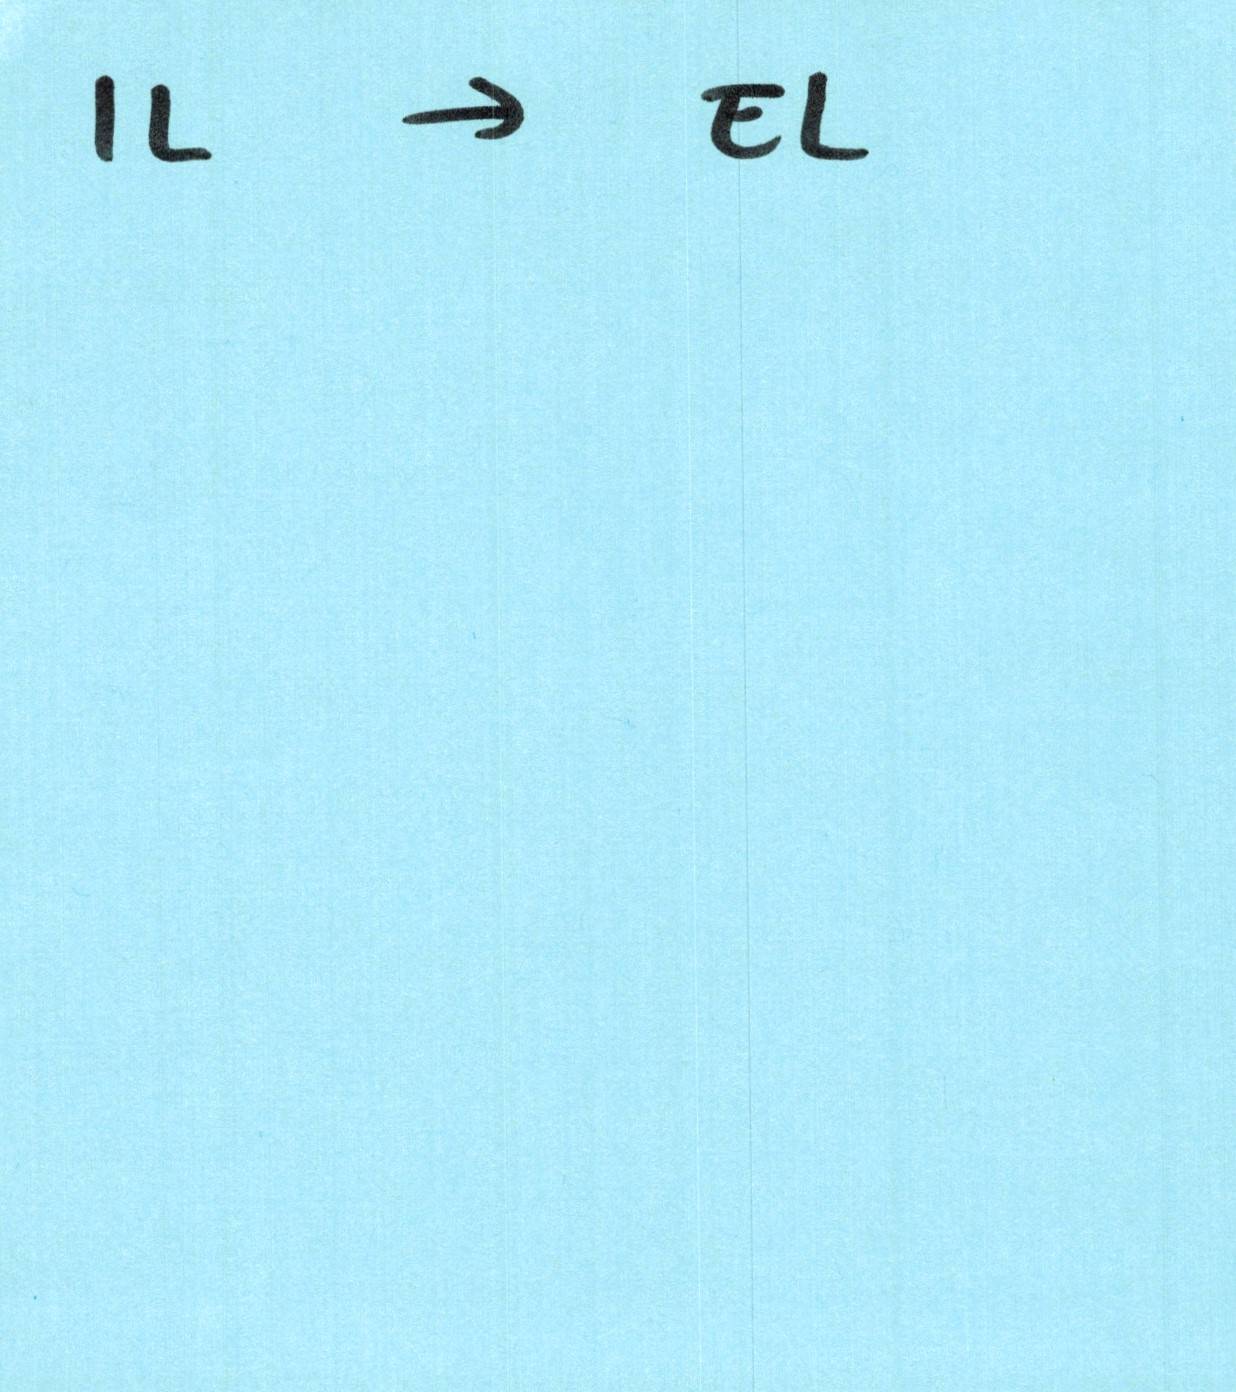 IL → EL